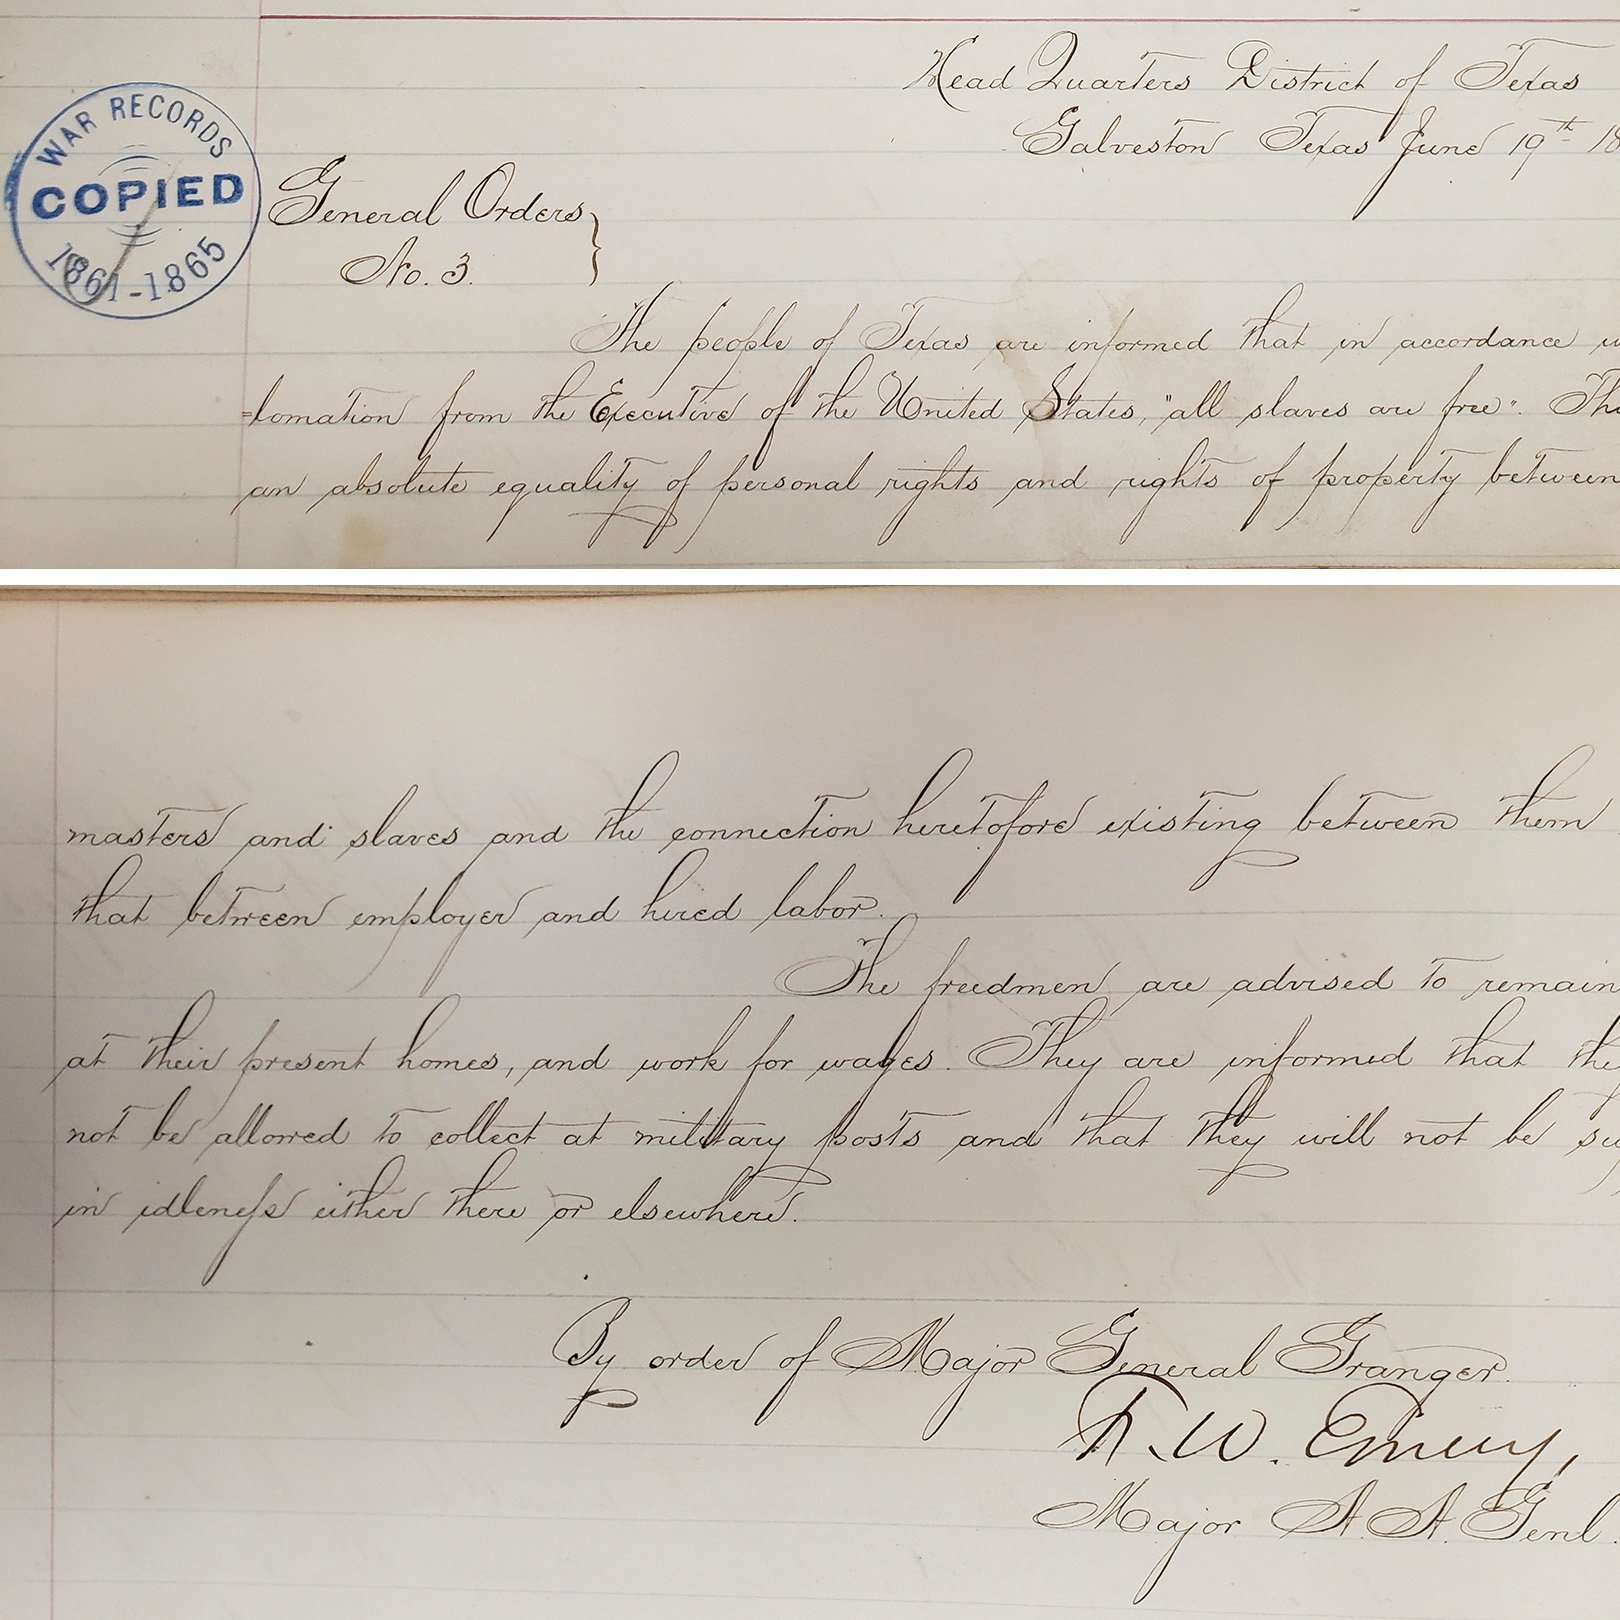 Head Quarters District of Texas
Galveston Texas June 19th 18
WAR RECORDS
COPIED
1861-1865
General Orders
No. 3.
The people of Texas are informed that in accordance
=lamation from the Executive of the United States, "all slaves are free". Thi
an absolute equality of personal rights and rights of property between
masters and slaves and the connection heretofore existing between them
that between employer and hired labor.
The freedmen are advised to remain
at their present homes, and work for wages. They are informed that the
not be allowed to collect at military posts and that they will not be su
in idleness either there or elsewhere.
By order of Major General Granger.
F. W. Emery,
Major A. A. Genl.